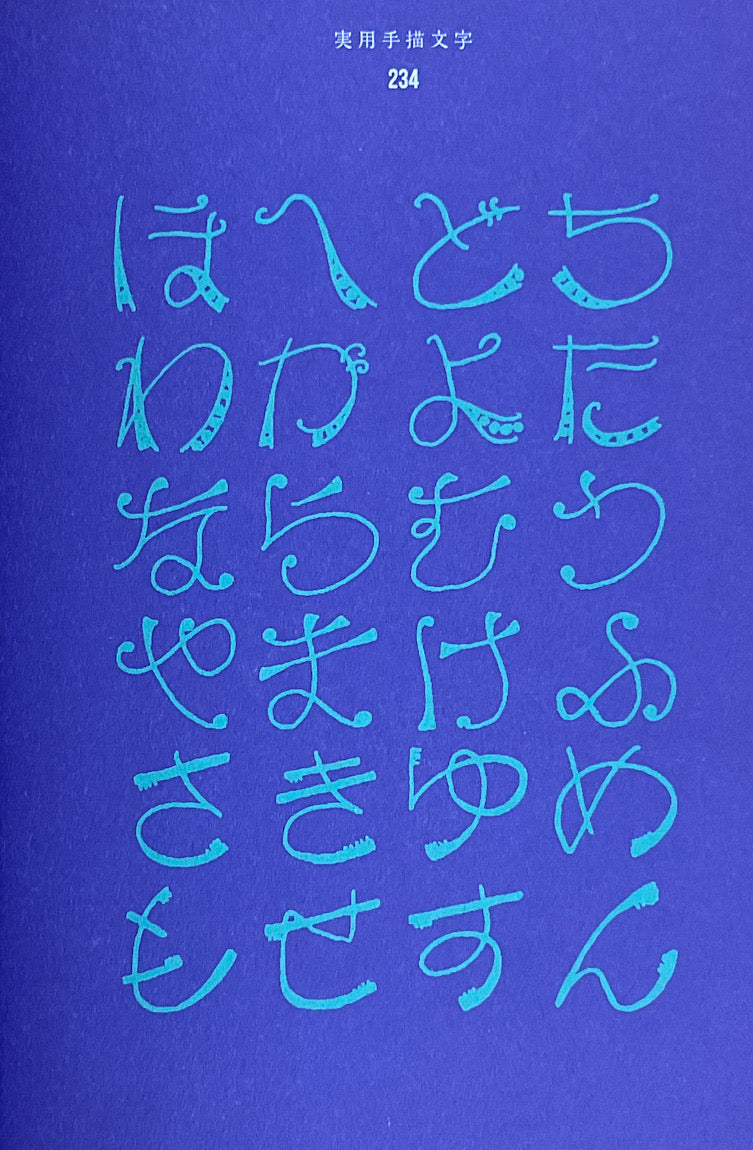 実用手描文字
234
ほへどち
わがよた
ならむう
やまけふ
さきゆめ
もせすん